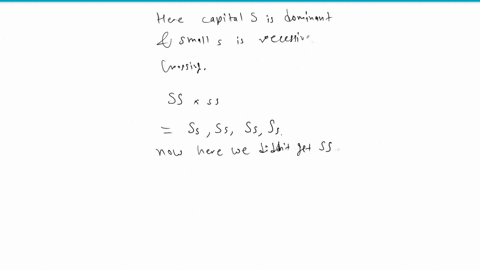 Here capital S is dominant
& small s is recessive.
Crossing.
SS × ss
= Ss, Ss, Ss, Ss.
now here we didn't get SS.